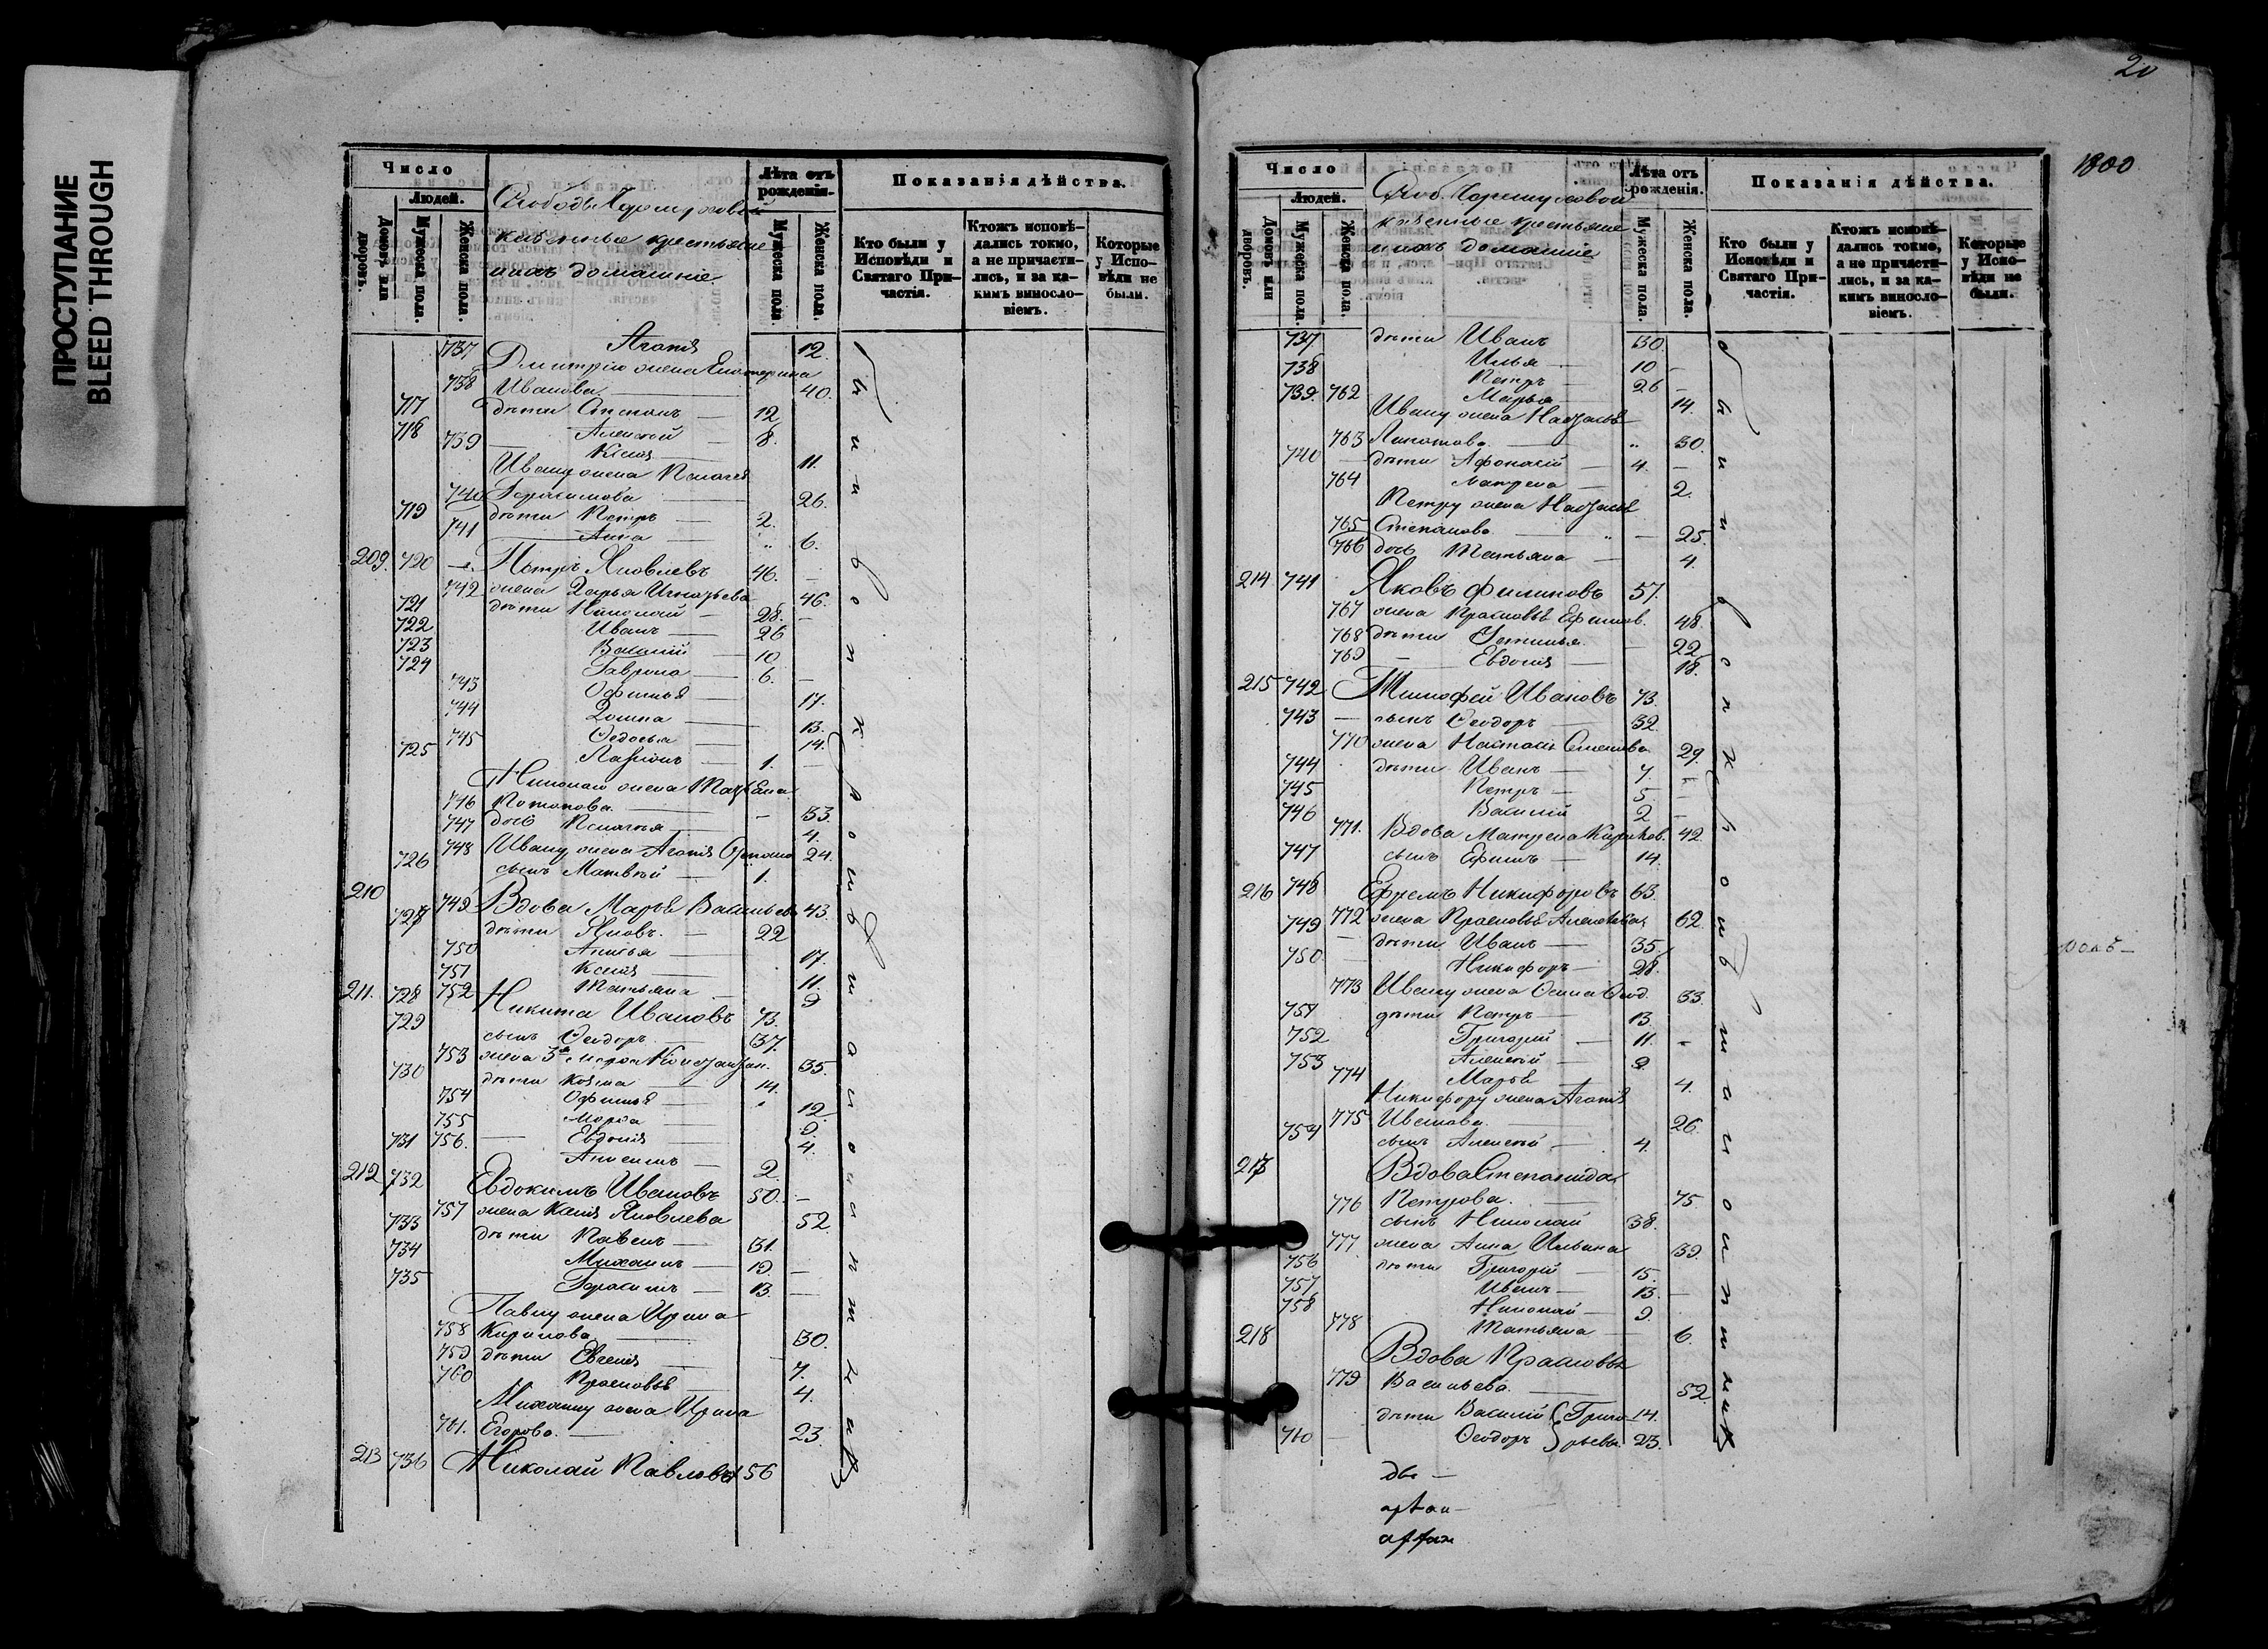 ПРОСТУПАНИЕ
BLEED THROUGH
Число
Людей.
Домовъ или дворовъ.
Мужеска пола.
Женска пола.
казенные крестьяне
и ихъ домашніе
Лѣта отъ рожденія.
Мужеска пола.
Женска пола.
Показанія дѣйства.
Кто были у Исповѣди и Святаго Причастія.
Ктожъ исповѣдались токмо, а не причастились, и за какимъ винословіемъ.
Которые у Исповѣди не были.
737 Агафія 12.
Дмитрію жена Екатерина
738 Иванова 40.
717 дѣти Степанъ — 12
718 Алексѣй — 8.
739 Ксенія 11.
Ивану жена Пелагея
740 Герасимова 26.
719 дѣти Петръ — 2.
741 Анна — 6.
209. 720 Петръ Яковлевъ 46.
742 жена Дарья Игнатьева 46.
721 дѣти Николай — 28.
722 Иванъ — 26
723 Василій — 10
724 Гаврила — 6.
743 Офимья — 17.
744 Домна — 13.
745 Ѳедосья 14.
725 Ларіонъ — 1.
Николаю жена
746 Потапова. 33.
747 дочь Пелагея 4.
748 Ивану жена Агафія 24.
726 сынъ Матвѣй — 1.
210 749 Вдова Марья Васильева 43.
727 дѣти Яковъ. — 22
750 Анисья 17.
751 Ксенія 11.
211. 728 752 Татьяна 9
Никита Ивановъ 73.
729 сынъ Ѳеодоръ 37.
753 жена 35.
730 дѣти Козма 14.
754 Офимья — 12.
755 Марѳа 9.
731 756. Евдокія 4.
2.
212 732 Евдокимъ Ивановъ 50.
757 жена Ксенія Яковлева 52.
733 дѣти Павелъ — 31.
734 Михаилъ — 19
735 Герасимъ — 13.
Павлу жена Ирина
758 Карпова 30.
759 дѣти Евгенія 7.
760 Прасковья 4.
Михаилу жена Ирина
761. Егорова. 23.
213 736 Николай Павловъ 56
20
1800
Число
Людей.
Домовъ или дворовъ.
Мужеска пола.
Женска пола.
казенные крестьяне
и ихъ домашніе
Лѣта отъ рожденія.
Мужеска пола.
Женска пола.
Показанія дѣйства.
Кто были у Исповѣди и Святаго Причастія.
Ктожъ исповѣдались токмо, а не причастились, и за какимъ винословіемъ.
Которые у Исповѣди не были.
737. дѣти Иванъ 30.
738 Илья 10
739. 762 Петръ 26
Марья 14.
Ивану жена Настасья
763 30.
740 дѣти Афонасій — 4.
764 Матрена — 2.
Петру жена Настасья
765 Степанова 25.
766 дочь Татьяна 4.
214 741 Яковъ Филиповъ 57.
767 жена Прасковья Ефимов. 48.
768 дѣти Устинья. 22
769 Евдокія 18.
215 742 Тимофей Ивановъ 73.
743 — сынъ Ѳеодоръ 32.
770 жена Настасья 29.
744 дѣти Иванъ — 7.
745 Петръ — 5.
746 Василій 2
771. Вдова Матрена 42.
747 сынъ Ефимъ — 14.
216 748 Ефремъ Никифоровъ 63.
749 772 жена Прасковья Алексѣева 62.
дѣти Иванъ — 35.
750 Никифоръ — 28.
773 Ивану жена 33.
751 дѣти Петръ — 13.
752 Григорій — 11.
753 Алексѣй — 9
774 Марья 4.
Никифору жена Агафія
775 Иванова. 26.
754 сынъ Алексѣй 4.
217 Вдова Степанида
776 Петрова. 75.
сынъ Николай 38.
777 жена Анна Ильина 39.
756 дѣти Григорій — 15.
757 Иванъ — 13.
758 Николай — 9.
778 Татьяна 6.
218 Вдова Прасковья
779 Васильева 52.
дѣти Василій Григо- 14.
760 Ѳеодоръ рьевы 23.